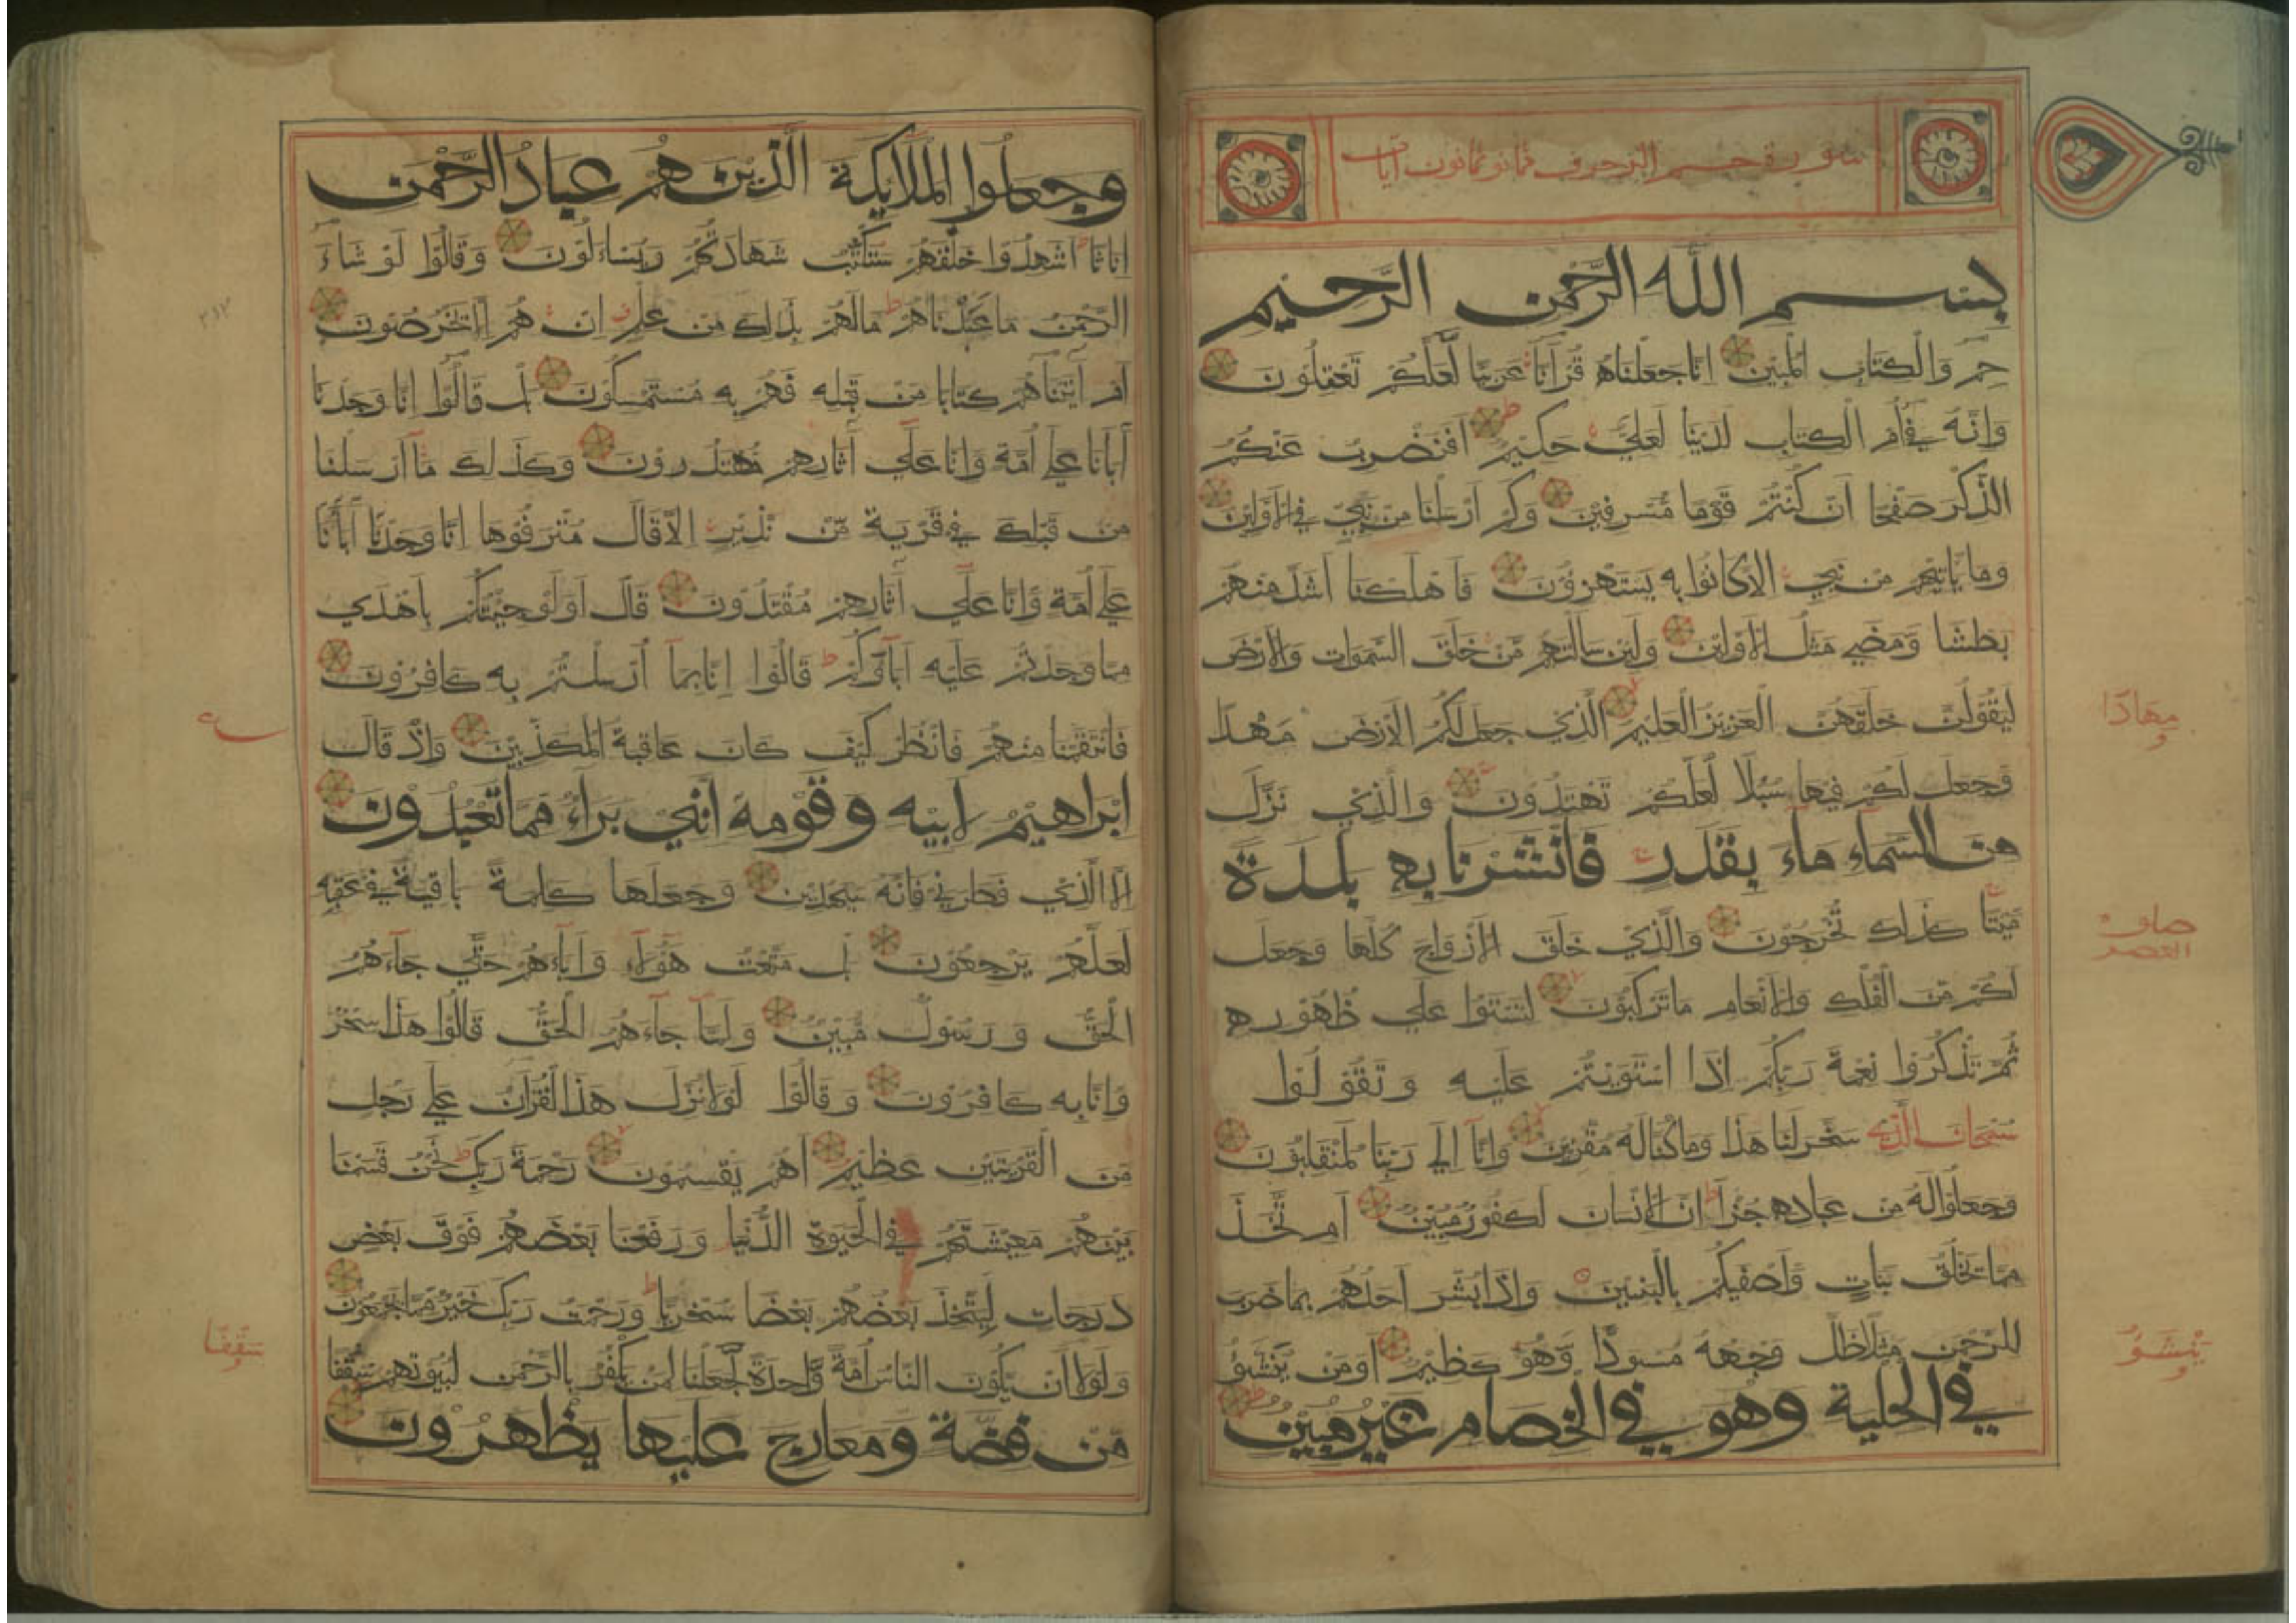 سورة حم الزخرف ثمانو ثمانون آيات
بسم الله الرحمن الرحيم
حم والكتاب المبين انا جعلناه قرآنا عربيا لعلكم تعقلون
وانه في أم الكتاب لدينا لعلي حكيم افنضرب عنكم
الذكر صفحا ان كنتم قوما مسرفين وكم ارسلنا من نبي في الأولين
وما ياتيهم من نبي الا كانوا به يستهزؤن فاهلكنا اشد منهم
بطشا ومضى مثل الأولين ولئن سالتهم من خلق السموات والارض
ليقولن خلقهن العزيز العليم الذي جعل لكم الارض مهدا
وجعل لكم فيها سبلا لعلكم تهتدون والذي نزل
من السماء ماء بقدر فانشرنا به بلدة
ميتا كذلك تخرجون والذي خلق الازواج كلها وجعل
لكم من الفلك والانعام ما تركبون لتستوا على ظهوره
ثم تذكروا نعمة ربكم اذا استويتم عليه وتقولوا
سبحان الذي سخر لنا هذا وما كنا له مقرنين وانا الى ربنا لمنقلبون
وجعلوا له من عباده جزأ ان الانسان لكفور مبين ام تخذ
مما يخلق بنات واصفيكم بالبنين واذا بشر احدهم بما ضرب
للرحمن مثلا ظل وجهه مسودا وهو كظيم اومن ينشؤ
في الحلية وهو في الخصام غير مبين
مهادا
ينشؤ
وجعلوا الملايكة الذين هم عباد الرحمن
اناثا اشهدوا خلقهم ستكتب شهادتهم ويسءلون وقالوا لو شاء
الرحمن ما عبدناهم مالهم بذلك من علم ان هم الا يخرصون
ام آتيناهم كتابا من قبله فهم به مستمسكون بل قالوا انا وجدنا
آبانا على امة وانا على آثارهم مهتدون وكذلك ما ارسلنا
من قبلك في قرية من نذير الا قال مترفوها انا وجدنا آبأنا
على امة وانا على آثارهم مقتدون قال اولو جيتكم باهدى
مما وجدتم عليه آباؤكم قالوا انا بما ارسلتم به كافرون
فانتقمنا منهم فانظر كيف كان عاقبة المكذبين واذ قال
ابراهيم لابيه وقومه انني براء مما تعبدون
الا الذي فطرني فانه سيهدين وجعلها كلمة باقية في عقبه
لعلهم يرجعون بل متعت هؤلاء وآباءهم حتى جاءهم
الحق ورسول مبين ولما جاءهم الحق قالوا هذا سحر
وانا به كافرون وقالوا لولا نزل هذا القرآن على رجل
من القريتين عظيم اهم يقسمون رحمة ربك نحن قسمنا
بينهم معيشتهم في الحيوة الدنيا ورفعنا بعضهم فوق بعض
درجات ليتخذ بعضهم بعضا سخريا ورحمت ربك خير مما يجمعون
ولولا ان يكون الناس امة واحدة لجعلنا لمن يكفر بالرحمن لبيوتهم سقفا
من فضة ومعارج عليها يظهرون
سقفا